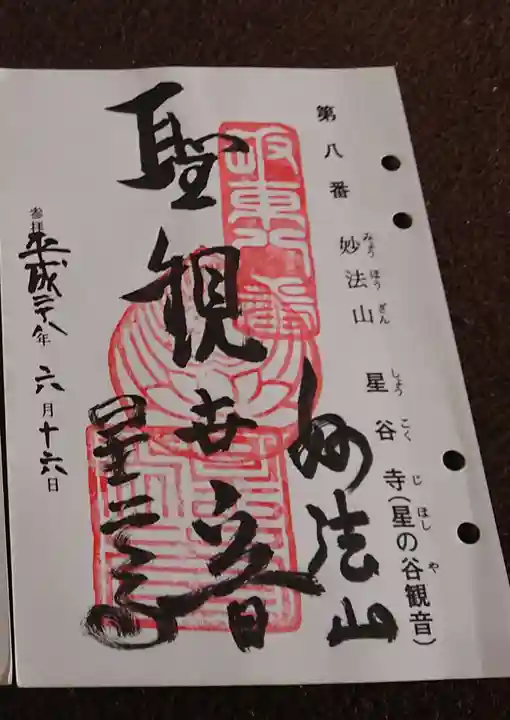 第八番 妙法山 星谷寺(星の谷観音)
みょう ほう ざん しょう こく じ ほし や
妙法山
聖観世音
星谷寺
参拝 平成二十八年 六月十六日
坂東八番